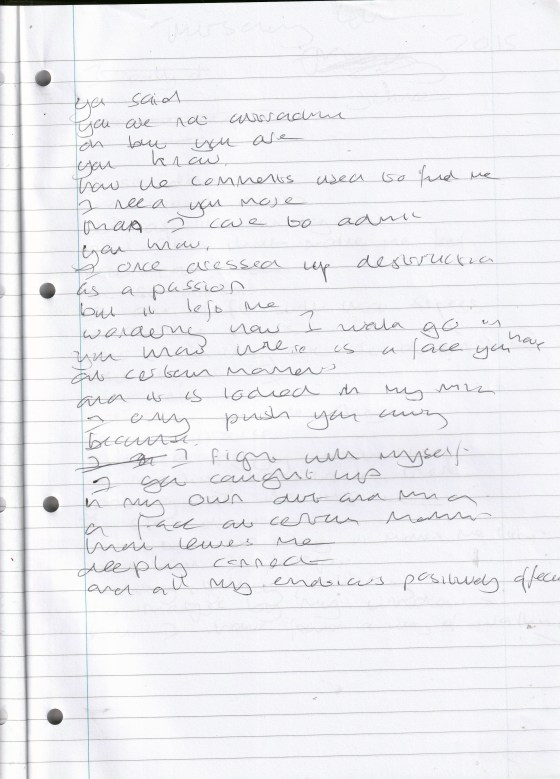 you said
you are not
oh but you are
you know.
how the comments used to find me
I need you more
than I care to admit
you know.
I once dressed up destruction
as a passion
but it left me
wondering how I would go on
you know there is a face you have
at certain moments
and it is locked in my mind
I only push you away
because.
I I fight with myself.
I get caught up
in my own dirt and
a face at certain moments
that leaves me
deeply connected
and all my emotions positively